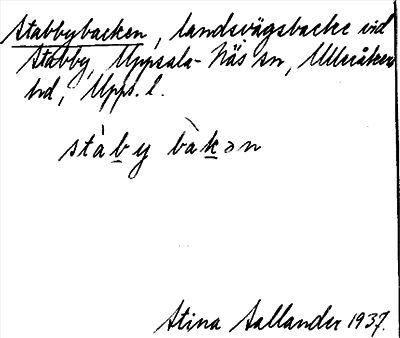 Stabbybacken, landsvägsbacke vid
Stabby, Uppsala-Näs sn, Ulleråkers
hd, Upps. l.
stàby bàkən
Stina Sallander 1937.